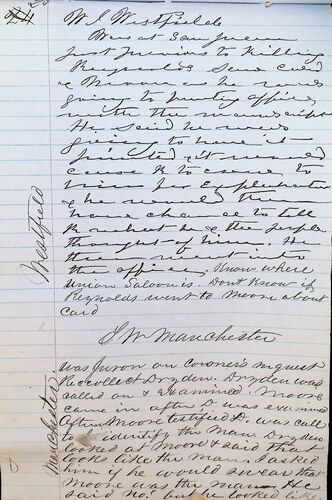 W. S. Westfield
Was at San Juan
just previous to killing
Reynolds. Saw Card
& Moore as he was
going to printing office,
with the manuscript
He said he was
going to have it
printed & it would
cause R to come to
him for explanation
& he would then
have chance to tell
R what he & the people
thought of him. He
then went into
the office. Know where
Union Saloon is. Dont Know if
Reynolds went to Moore about
Card
Westfield
J W Manchester
was Juror on Coroner's inquest
Recollect Dryden. Dryden was
called on & examined. Moore
came in after D. was examined
After Moore testified D. was called
to identify the man. Dryden
looked at Moore & said that
looks like the man. I asked
him if he would swear that
Moore was the man. He
said no. but he looked like
Manchester